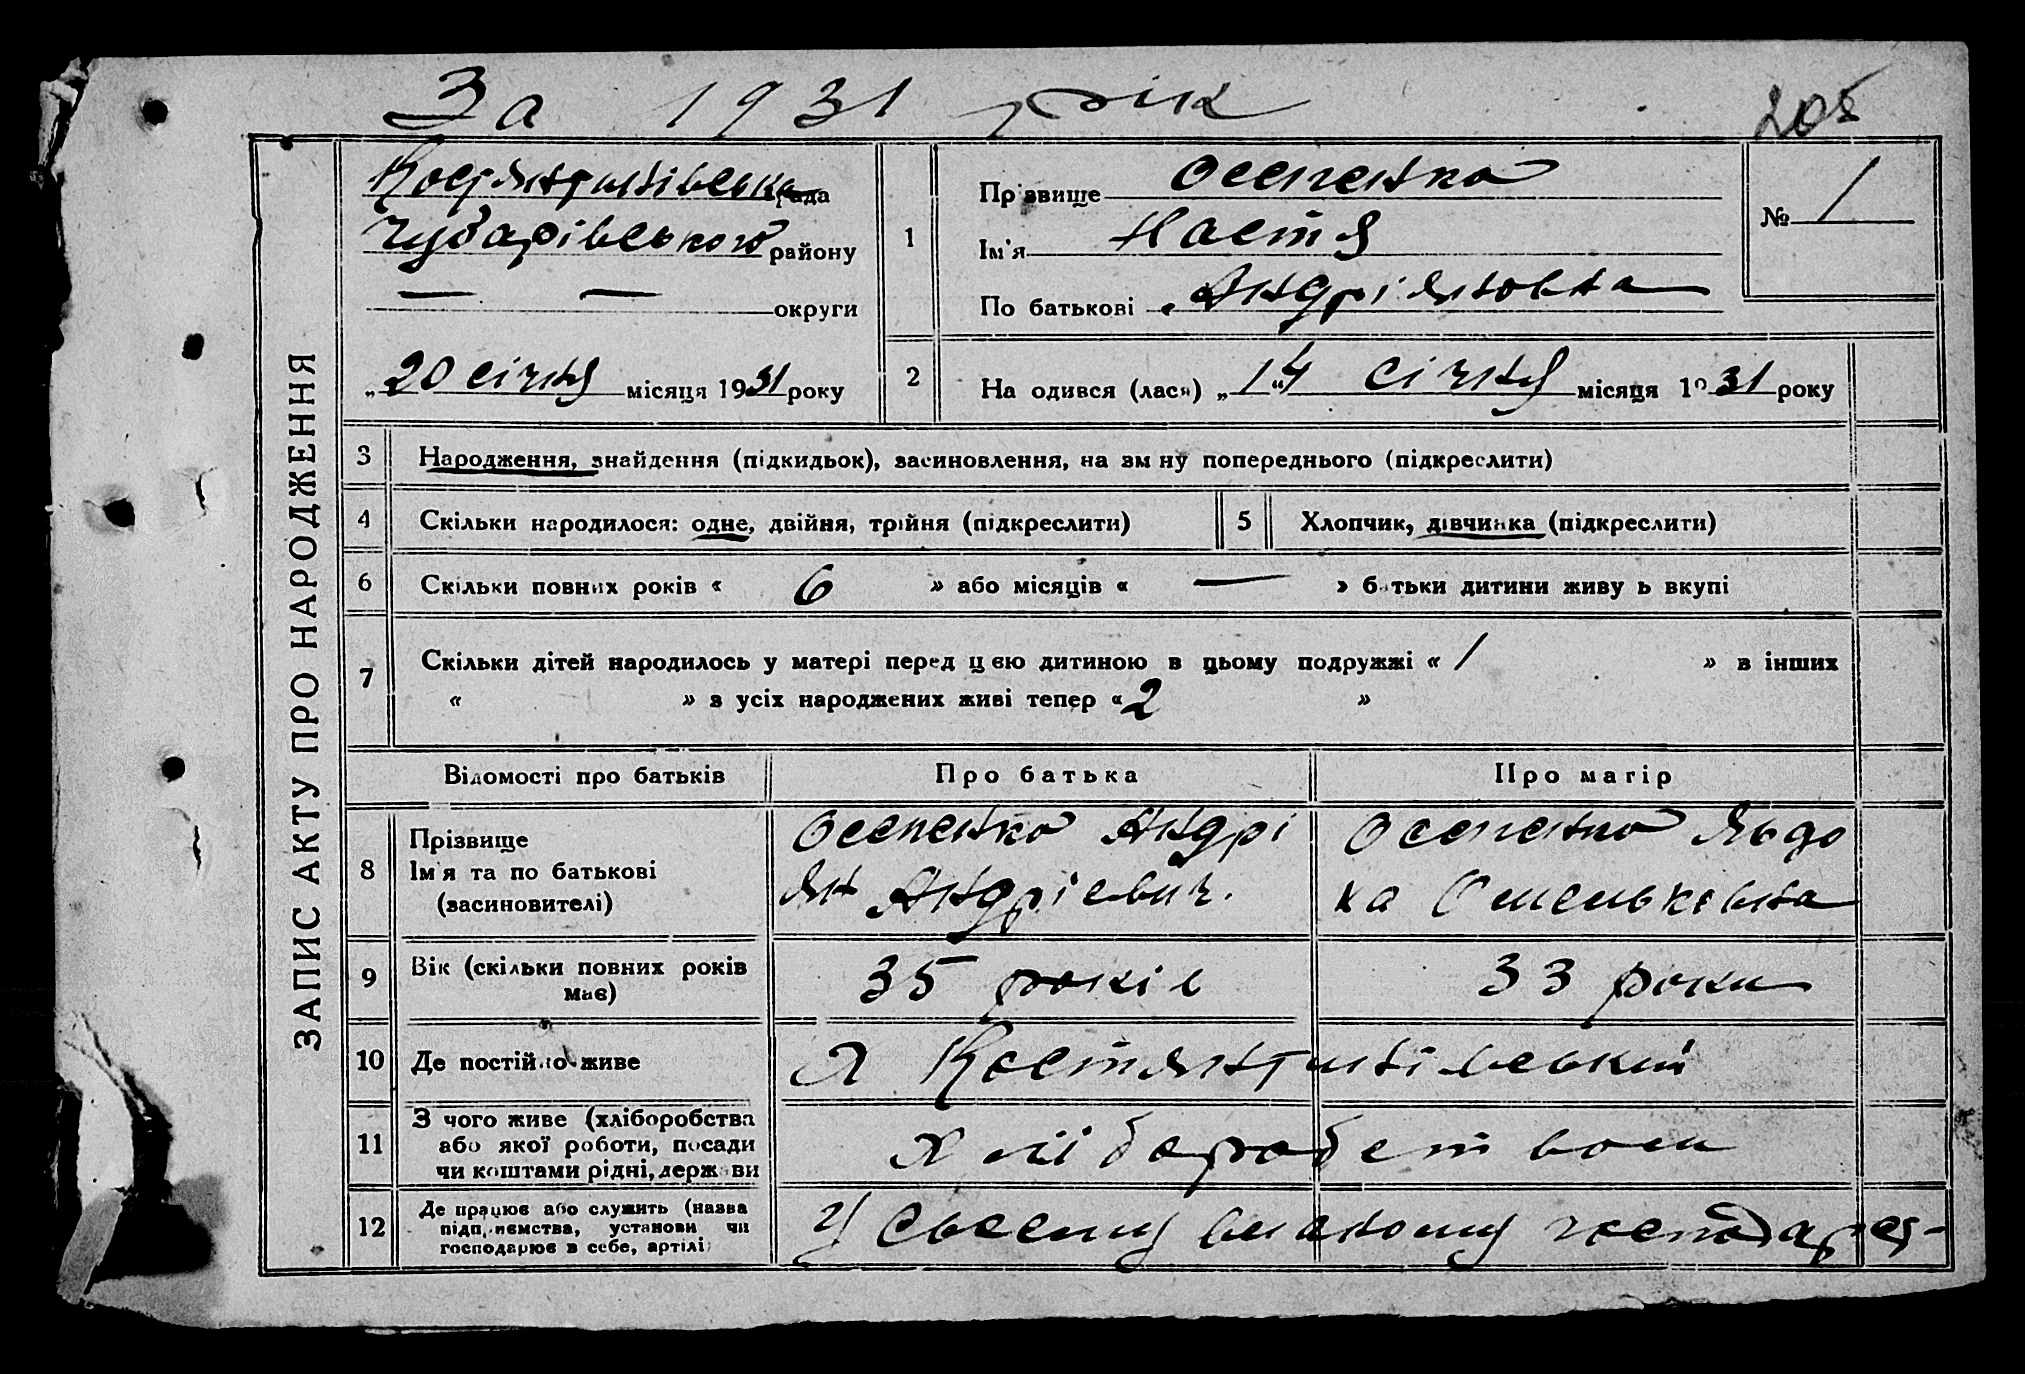 За 1931 рік
205
ЗАПИС АКТУ ПРО НАРОДЖЕННЯ
Костянтинівська рада
Чубарівського району
— — округи
„20 січня місяця 1931 року
1
Прізвище Осепенко
Ім'я Настя
По батькові Андріяновна
№ 1
2
На одився (лася) „14" січня місяця 1931 року
3 Народження, знайдення (підкидьок), засиновлення, на зм ну попереднього (підкреслити)
4 Скільки народилося: одне, двійня, трійня (підкреслити)
5 Хлопчик, дівчинка (підкреслити)
6 Скільки повних років « 6 » або місяців « — » батьки дитини живу ь вкупі
7 Скільки дітей народилось у матері перед цею дитиною в цьому подружжі « 1 » в інших
« » з усіх народжених живі тепер « 2 »
Відомості про батьків
Про батька
Про матір
8 Прізвище
Ім'я та по батькові
(засиновителі)
Осепенко Андрі
ян Андріевич.
Осепенко Явдо
ха
9 Вік (скільки повних років
має)
35 років
33 роки
10 Де постійно живе
Костянтинівський
11 З чого живе (хліборобства
або якої роботи, посади
чи коштами рідні, держави
Хліборобством
12 Де працює або служить (назва
підприємства, установи чи
господарює в себе, артілі)
У своєму власному господарст-